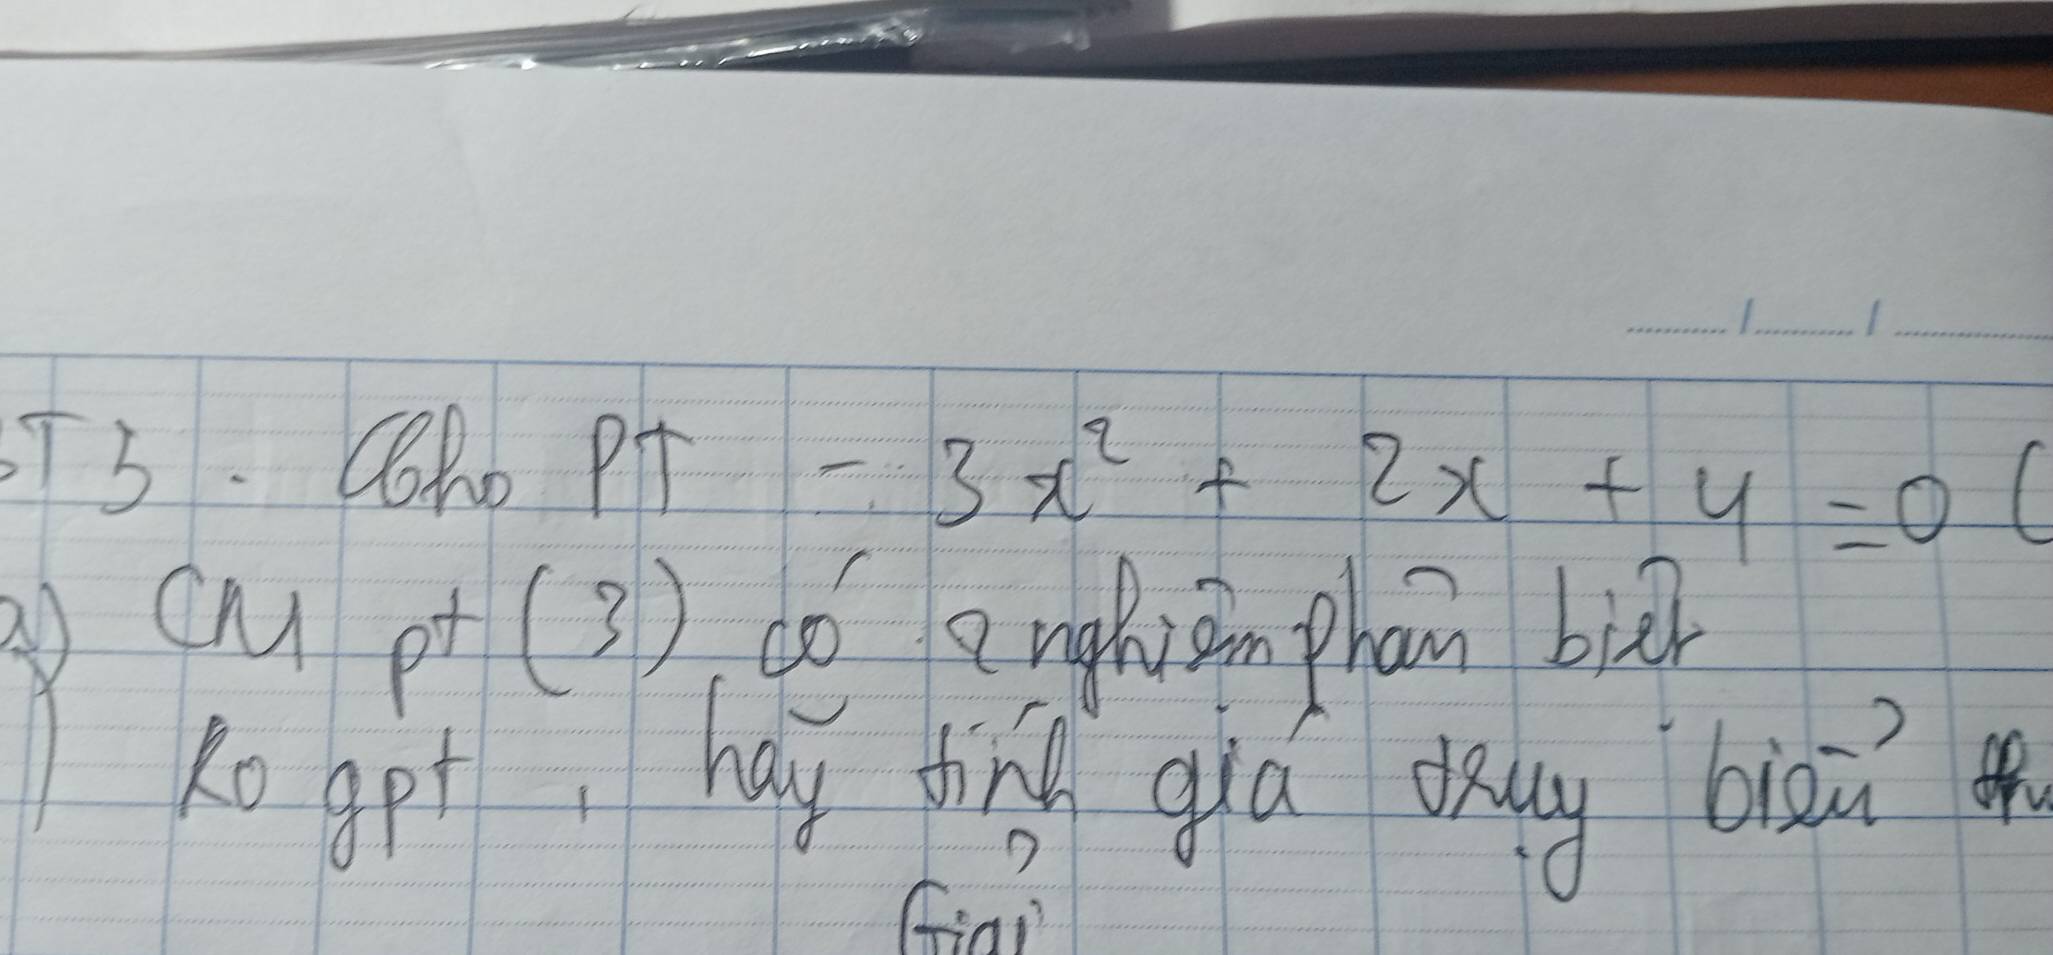 BT 3. Cho PT - 3x² + 2x + 4 = 0 (
a) CM pt (3) có 2 nghiệm phân biệt
ko gpt, hãy tính giá trị biểu
Giải